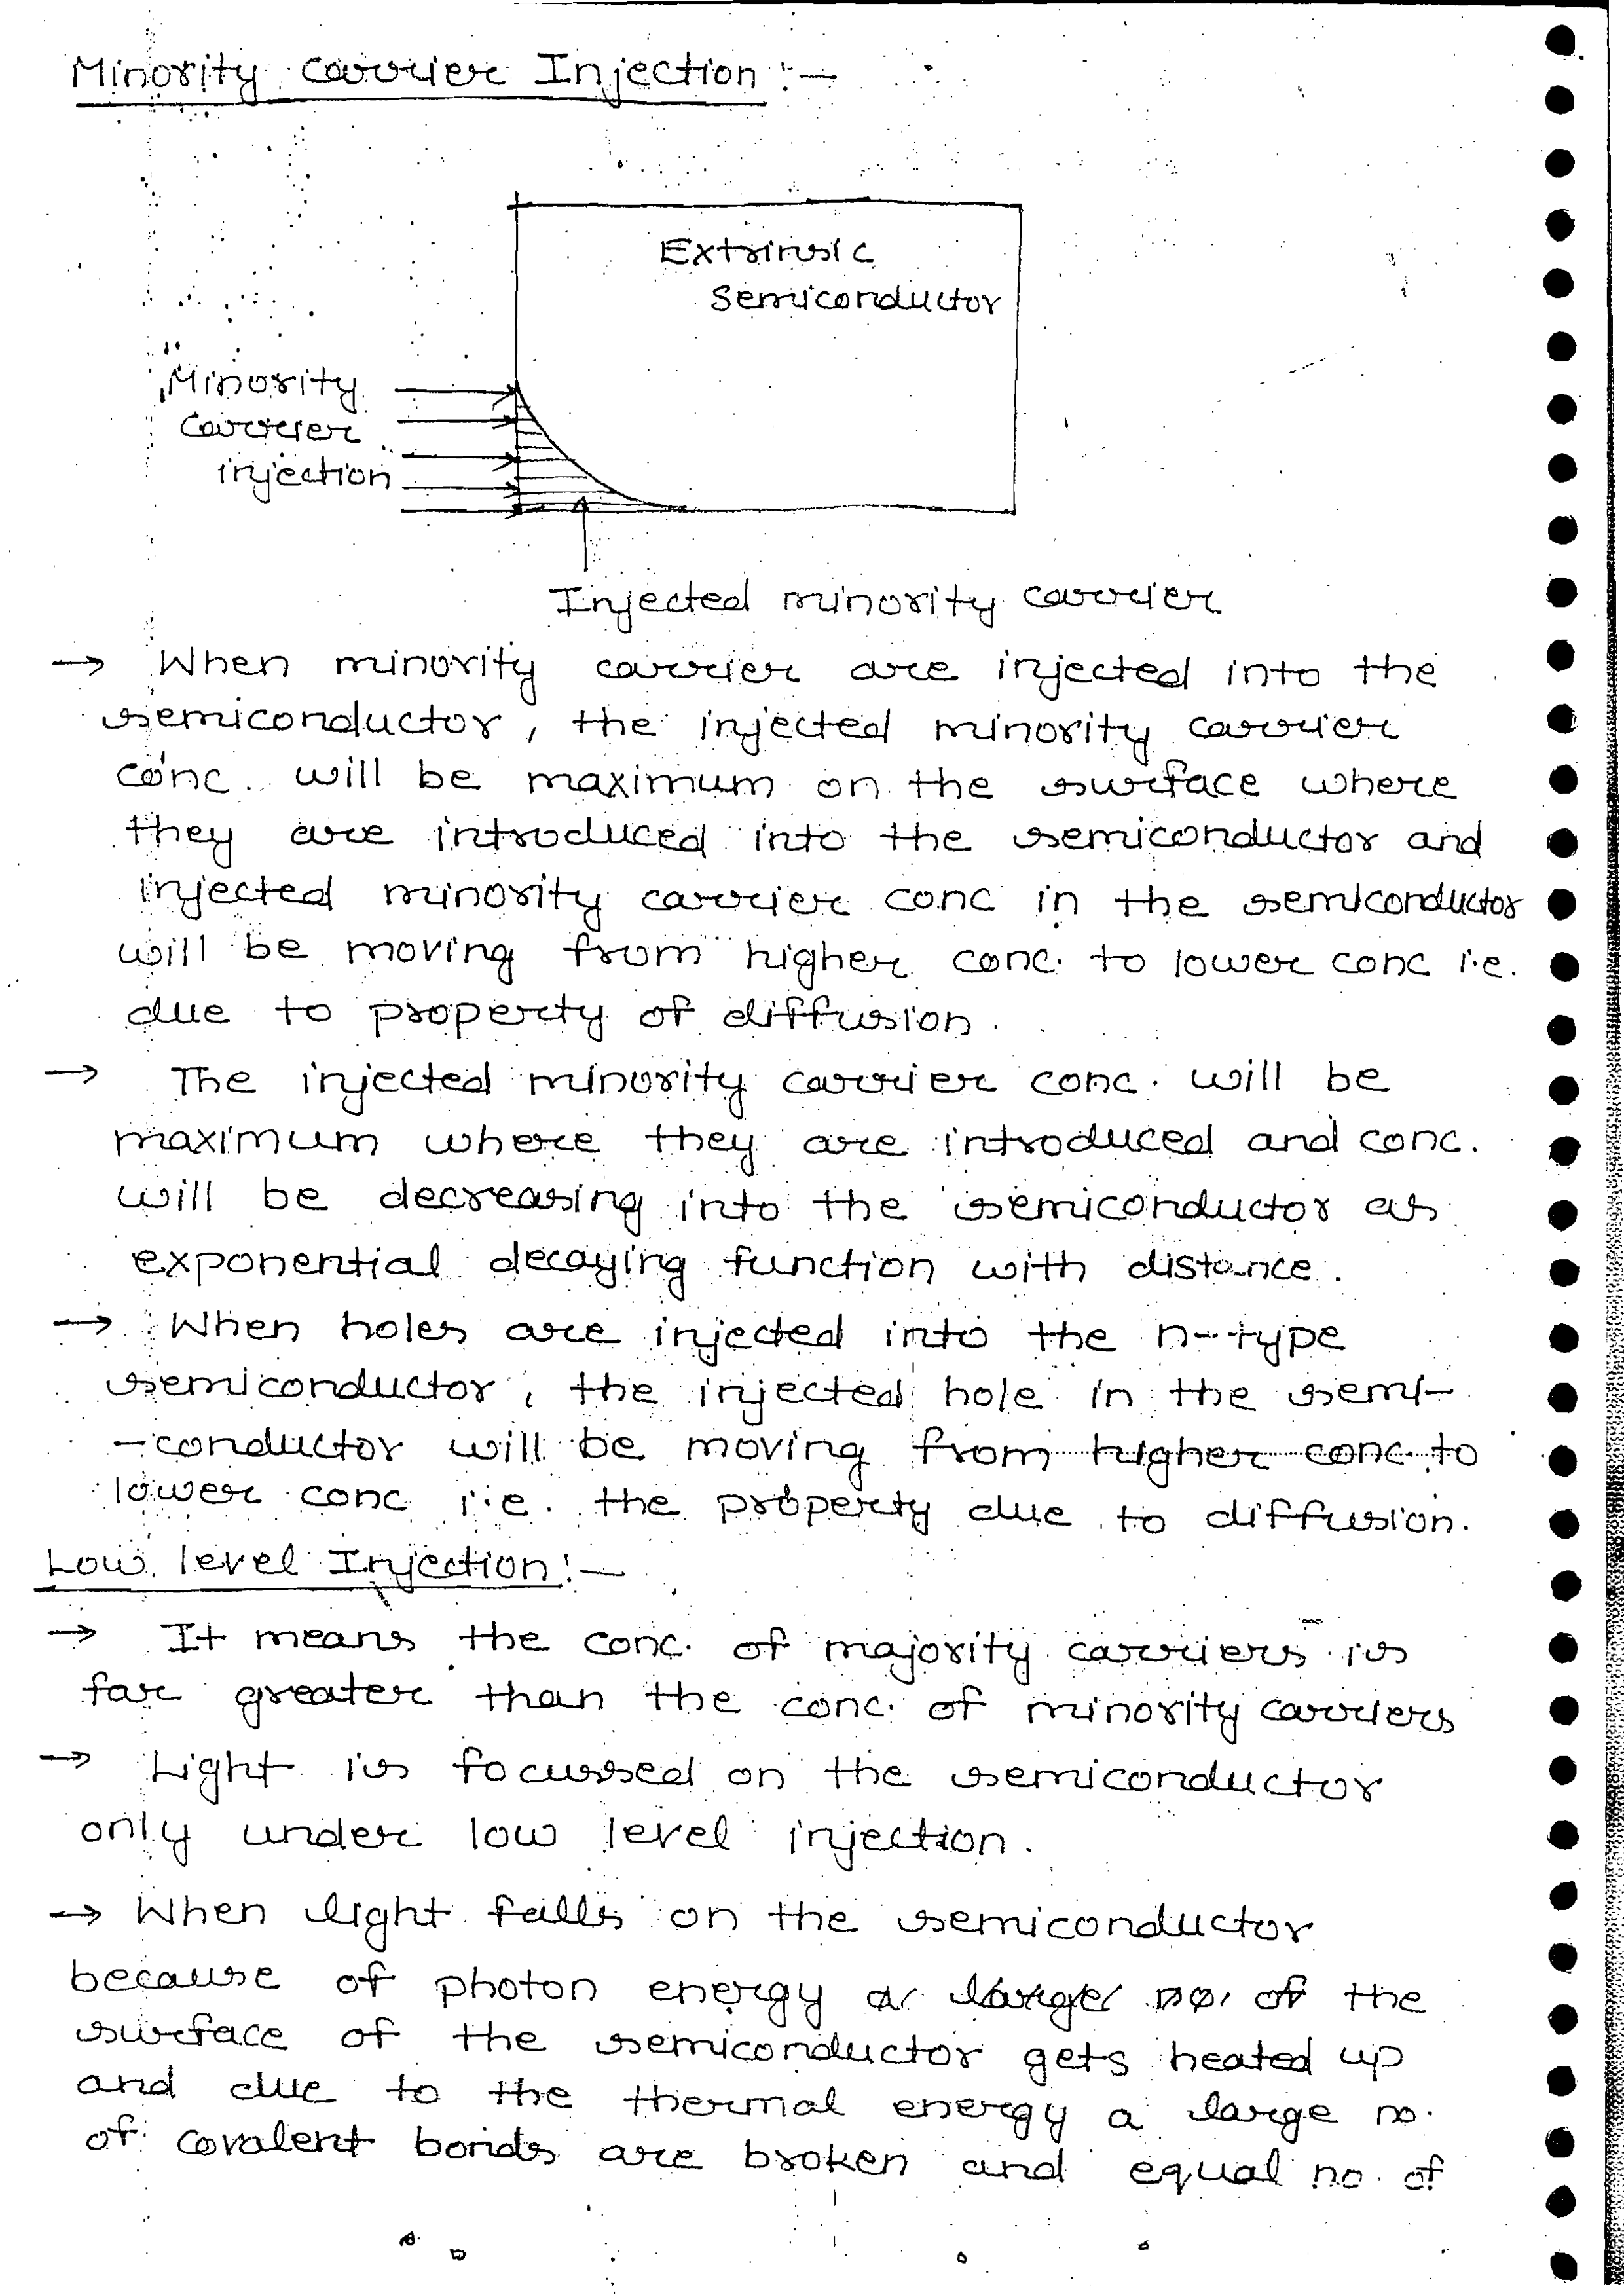 Minority Carrier Injection :-
Extrinsic
Semiconductor
Minority
Carrier
injection
Injected minority carrier
→ When minority carrier are injected into the
semiconductor, the injected minority carrier
conc. will be maximum on the surface where
they are introduced into the semiconductor and
injected minority carrier conc in the semiconductor
will be moving from higher conc. to lower conc i.e.
due to property of diffusion.
→ The injected minority carrier conc. will be
maximum where they are introduced and conc.
will be decreasing into the semiconductor as
exponential decaying function with distance.
→ When holes are injected into the n-type
semiconductor, the injected hole in the semi-
-conductor will be moving from higher conc. to
lower conc i.e. the property due to diffusion.
Low level Injection :-
→ It means the conc. of majority carriers is
far greater than the conc. of minority carriers
→ Light is focussed on the semiconductor
only under low level injection.
→ When light falls on the semiconductor
because of photon energy a large no. of the
surface of the semiconductor gets heated up
and due to the thermal energy a large no.
of covalent bonds are broken and equal no. of